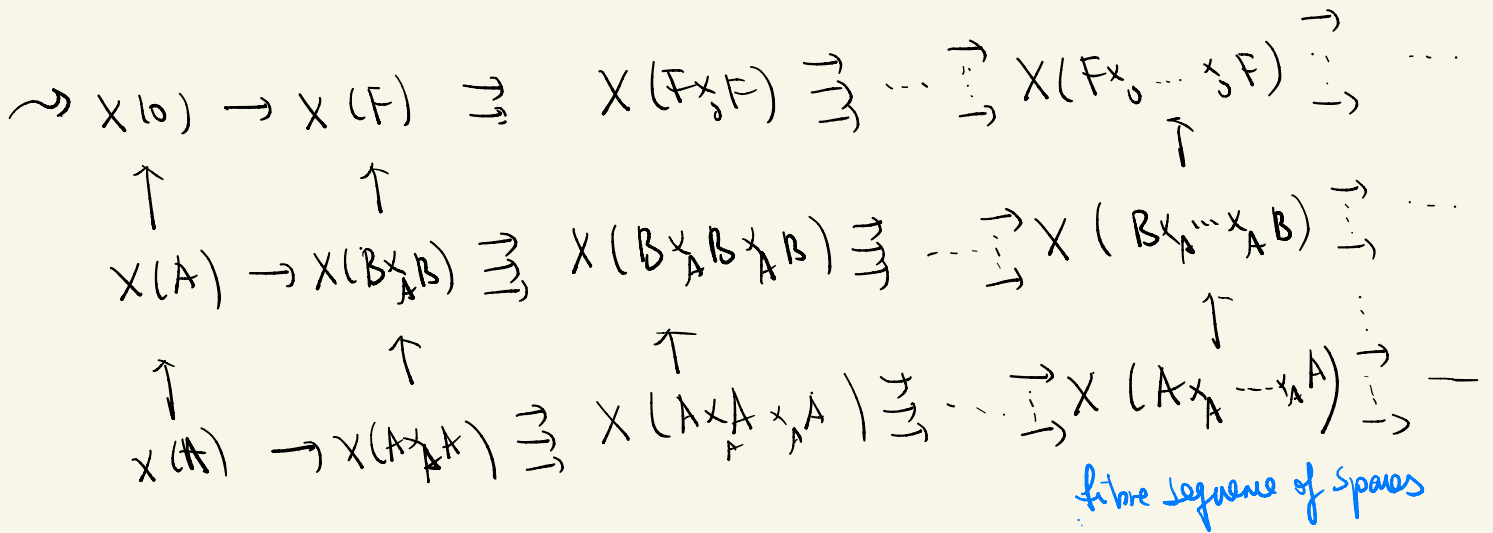 ⇝ X(0) → X(F) ⇉ X(F×₀F) ⇶ ... ⇉ X(F×₀...×₀F) ⇉ ....
↑ ↑ ↑
X(A) → X(B×_A B) ⇶ X(B×_A B×_A B) ⇶ .... ⇉ X(B×_A...×_A B) ⇉ ....
↑ ↑ ↑ ↑
X(A) → X(A×_A A) ⇶ X(A×_A A×_A A) ⇶ .... ⇉ X(A×_A ....×_A A) ⇉ —
fibre sequence of spaces